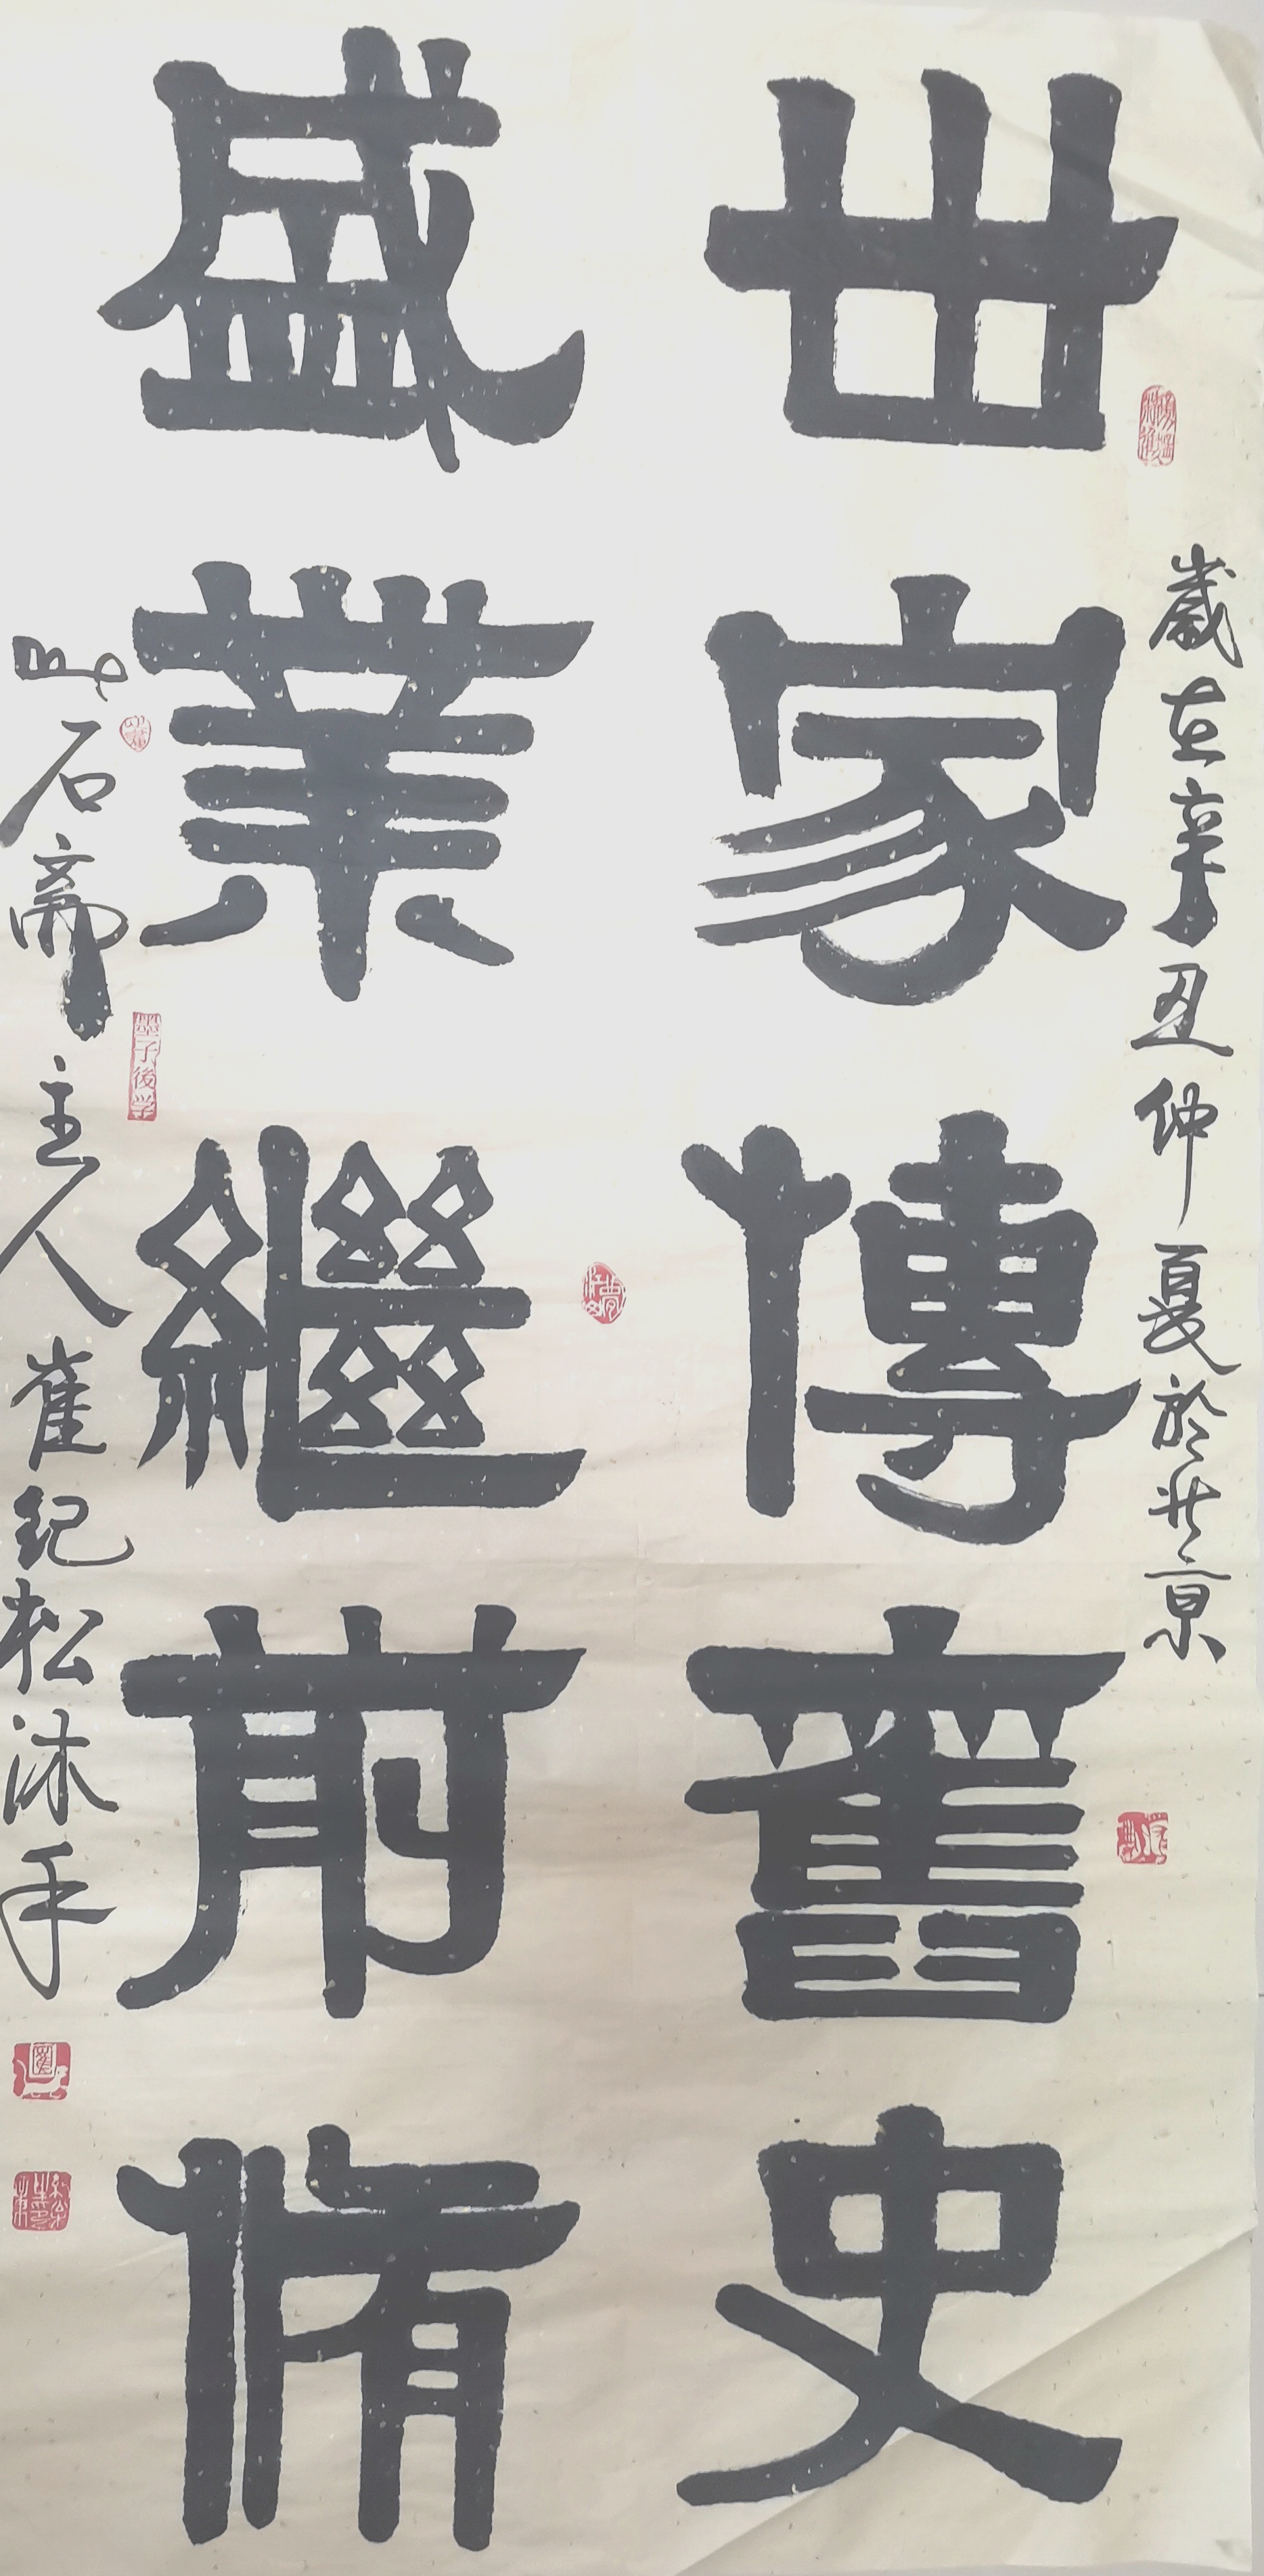 歲在辛丑仲夏於北京
世家傳舊史
盛業繼前脩
此石齋主人崔纪松沐手
墨子後学